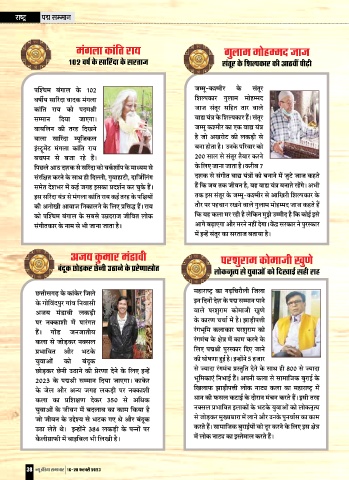 राष्ट्र पद्म सम्मान
मंगला कांति राय
102 वर्ष के सारिंदा के सरताज
पश्चिम बंगाल के 102
वर्षीय सारिंदा वादक मंगला
कांति राय को पद्मश्री
सम्मान दिया जाएगा।
वायलिन की तरह दिखने
वाला सारिंदा म्यूजिकल
इंस्ट्रूमेंट मंगला कांति राय
बचपन से बजा रहे हैं।
पिछले आठ दशक से सारिंदा को वर्कशॉप के माध्यम से
संरक्षित करने के साथ ही दिल्ली, गुवाहाटी, दार्जिलिंग
समेत देशभर में कई जगह इसका प्रदर्शन कर चुके हैं।
इस सारिंदा यंत्र से मंगला कांति राय कई तरह के पक्षियों
की अनोखी आवाज निकालने के लिए प्रसिद्ध हैं। राय
को पश्चिम बंगाल के सबसे उम्रदराज जीवित लोक
संगीतकार के नाम से भी जाना जाता है।
गुलाम मोहम्मद जाज
संतूर के शिल्पकार की आठवीं पीढ़ी
जम्मू-कश्मीर के संतूर
शिल्पकार गुलाम मोहम्मद
जाज संतूर सहित तार वाले
वाद्य यंत्र के शिल्पकार हैं। संतूर
जम्मू कश्मीर का एक वाद्य यंत्र
है जो अखरोट की लकड़ी से
बना होता है। उनके परिवार को
200 साल से संतूर तैयार करने
के लिए जाना जाता है। करीब 7
दशक से संगीत वाद्य यंत्रों को बनाने में जुटे जाज कहते
हैं कि जब तक जीवन है, वह वाद्य यंत्र बनाते रहेंगे। अभी
तक इस संतूर के जम्मू-कश्मीर से आखिरी शिल्पकार के
तौर पर पहचान रखने वाले गुलाम मोहम्मद जाज कहते हैं
कि यह कला मर रही है लेकिन मुझे उम्मीद है कि कोई इसे
आगे बढ़ाएगा और मरने नहीं देगा। केंद्र सरकार ने पुरस्कार
में इन्हें संतूर का सरताज बताया है।
अजय कुमार मंडावी
बंदूक छोड़कर छेनी उठाने के प्रेरणास्रोत
छत्तीसगढ़ के कांकेर जिले
के गोविंदपुर गांव निवासी
अजय मंडावी लकड़ी
पर नक्काशी में पारंगत
हैं। गोंड जनजातीय
कला से जोड़कर नक्सल
प्रभावित और भटके
युवाओं को बंदूक
छोड़कर छेनी उठाने की प्रेरणा देने के लिए इन्हें
2023 के पद्मश्री सम्मान दिया जाएगा। कांकेर
के जेल और अन्य जगह लकड़ी पर नक्काशी
कला का प्रशिक्षण देकर 350 से अधिक
युवाओं के जीवन में बदलाव का काम किया है
जो जीवन के उद्देश्य से भटक गए थे और बंदूक
उठा लेते थे। इन्होंने 384 लकड़ी के पन्नों पर
कैलीग्राफी में बाइबिल भी लिखी है।
परशुराम कोमाजी खुणे
लोकनृत्य से युवाओं को दिखाई सही राह
महाराष्ट्र का गढ़चिरौली जिला
इन दिनों देश के पद्म सम्मान पाने
वाले परशुराम कोमाजी खुणे
के कारण चर्चा में है। झाड़ीपत्ती
रंगभूमि कलाकार परशुराम को
रंगमंच के क्षेत्र में काम करने के
लिए पद्मश्री पुरस्कार दिए जाने
की घोषणा हुई है। इन्होंने 5 हजार
से ज्यादा रंगमंच प्रस्तुति देने के साथ ही 800 से ज्यादा
भूमिकाएं निभाई हैं। अपनी कला से सामाजिक बुराई के
खिलाफ झाड़ीपत्ती लोक नाट्य कला का महाराष्ट्र में
धान की फसल कटाई के दौरान मंचन करते हैं। इसी तरह
नक्सल प्रभावित इलाकों के भटके युवाओं को लोकनृत्य
से जोड़कर मुख्यधारा में लाने और उनके पुनर्वास का काम
करते हैं। सामाजिक बुराईयों को दूर करने के लिए इस क्षेत्र
में लोक नाट्य का इस्तेमाल करते हैं।
38 न्यू इंडिया समाचार 16-28 फरवरी 2023